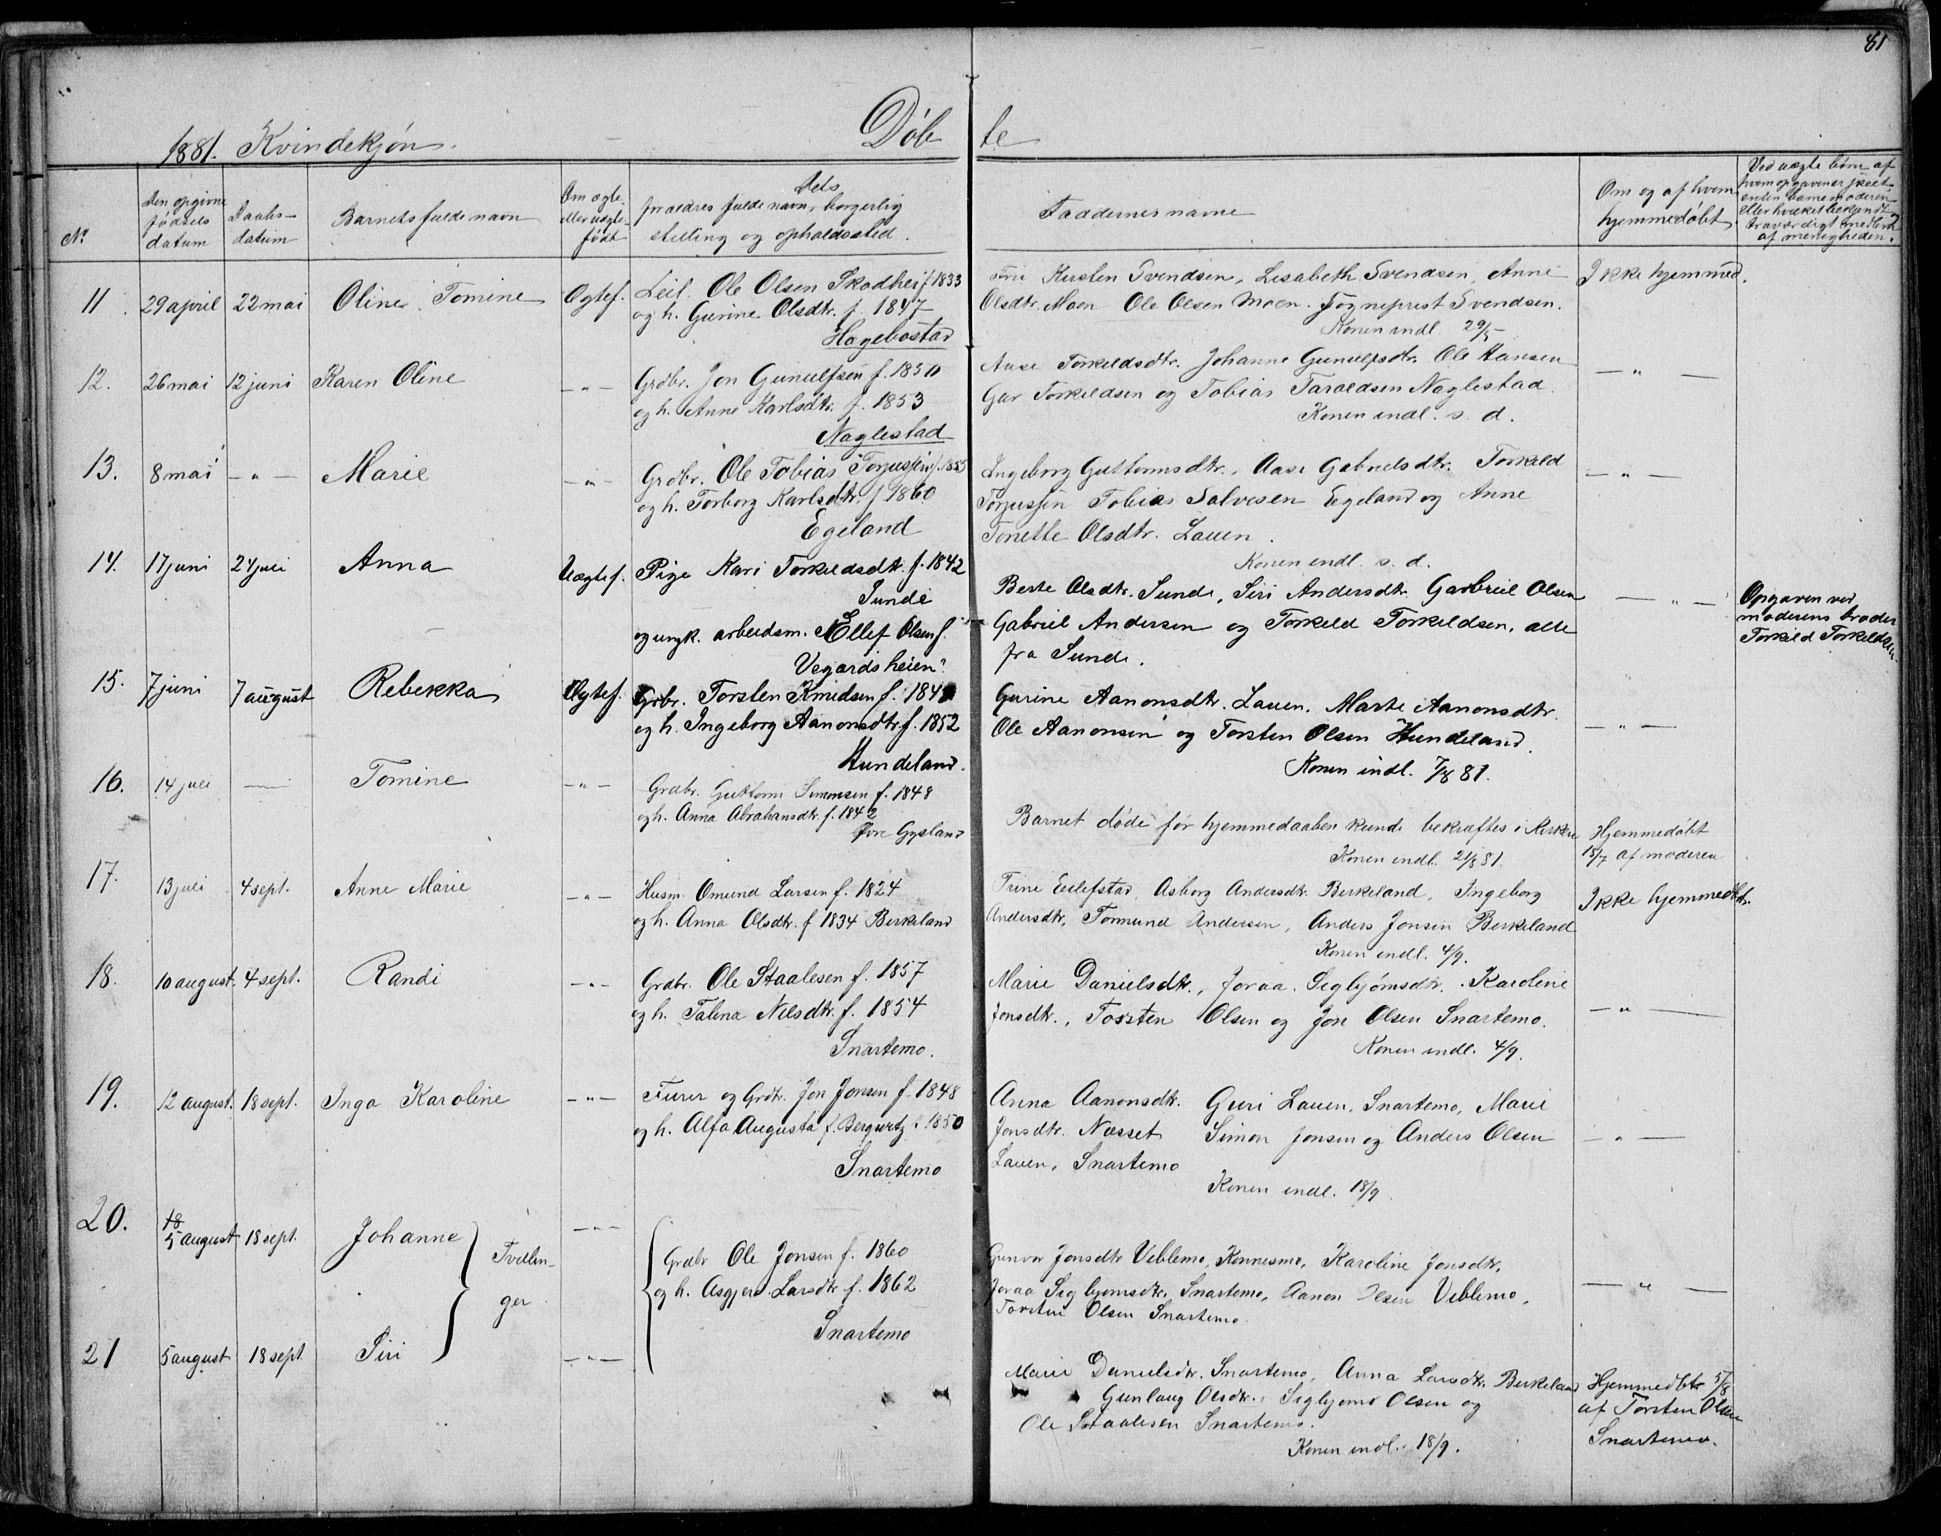 81
Døbte
1881. Kvindekjøn.
No
Den opgivne
fødsels
datum
Daabs-
datum
Barnets fulde navn
Om ægte
eller uægte
født
Dets
forældres fulde navn, borgerlig
stilling og opholdssted.
Faddernes navne
Om og af hvem
hjemmedøbt
Ved uægte børn af
hvem opgaven er skeet
enten barnemoderen
eller hvilket bekjendt
troværdigt medlem
af menigheden?
11. 29 april 22 mai Oline Tomine Ægtef.
Leil. Ole Olsen Skodhei f. 1833
og h. Gurine Olsdtr. f. 1847
Hægebostad
Kirsten Svendsen, Lisabeth Svendsen, Anne
Olsdtr. Moen Ole Olsen Moen. Sogneprest Svendsen.
Konen indl. 29/5
Ikke hjemmed.
12. 26 mai 12 juni Karen Oline — " —
Grdbr. Jon Gunulfsen f. 1850
og h. Anne Karlsdtr. f. 1853
Naglestad
Aase Torkildsdtr. Johanne Gunulfsdtr. Ole Hansen
Gar Torkildsen og Tobias Taraldsen Naglestad.
Konen indl. s. d.
— " —
13. 8 mai — " — Marie — " —
Grdbr. Ole Tobias Torjussen f. 1855
og h. Torborg Karlsdtr. f. 1860
Egeland
Ingeborg Guttormsdtr., Aase Gabrielsdtr. Torkild
Torjussen Tobias Salvesen Egeland og Anne
Tonette Olsdtr. Lauen.
Konen indl. s. d.
— " —
14. 17 juni 24 juli Anna Uægtef.
Pige Kari Torkildsdtr. f. 1842
Sunde
og ungk. arbeidsm. Ellef Olsen f.
Vegardsheien.
Berte Olsdtr. Sunde, Siri Andersdtr. Gabriel Olsen
Gabriel Andersen og Torkild Torkildsen, alle
fra Sunde.
— " —
Opgaven ved
moderens broder
Torkild Torkildsen.
15. 7 juni 7 august Rebekka Ægtef.
Grbr. Torsten Knudsen f. 184
og h. Ingeborg Aanonsdtr. f. 1852
Hundeland.
Gurine Aanonsdtr. Lauen. Marte Aanonsdtr.
Ole Aanonsen og Torsten Olsen Hundeland.
Konen indl. 7/8 81.
— " —
16. 14 juli — Tomine — " —
Grdbr. Guttorm Simonsen f. 1848
og h. Anna Abrahamsdtr. f. 1842
Øvre Gysland
Barnet døde før hjemmedaaben kunde bekræftes i Kirken
Konen indl. 21/8 81.
Hjemmedøbt
15/7 af moderen
17. 13 juli 4 sept. Anne Marie — " —
Husm. Omund Larsen f. 1824
og h. Anna Olsdtr. f. 1834 Berkeland
Trine Eilefstad, Asborg Andersdtr. Berkeland, Ingeborg
Andersdtr, Tormund Andersen, Anders Jonsen Berkeland
Konen indl. 4/9.
Ikke hjemmedbt.
18. 10 august. 4 sept. Randi — " —
Grdbr. Ole Staalesen f. 1857
og h. Talena Nilsdtr. f. 1854
Snartemo.
Marie Danielsdtr., Joraa Sigbjørnsdtr. Karoline
Jonsdtr., Torsten Olsen og Jon Olsen Snartemo.
Konen indl. 4/9.
— " —
19. 12 august. 18 sept. Inga Karoline — " —
Furer og Grdbr. Jon Jonsen f. 1848
og h. Alfa Augusta f. Bergwitz f. 1850
Snartemo
Anna Aanonsdtr. Guri Lauen, Snartemo, Marie
Jonsdtr. Næsset Simon Jonsen og Anders Olsen
Lauen, Snartemo
Konen indl. 18/9.
— " —
20. 5 august 18 sept. Johanne — " —
Tvillin-
ger
Grdbr Ole Jonsen f. 1860
og h. Asgjerd Larsdtr f. 1862
Snartemo
Gunvor Jonsdtr Veblemo, Konnesmo, Karoline Jonsdtr,
Joraa Sigbjørnsdtr. Snartemo, Aanon Olsen Veblemo,
Torsten Olsen Snartemo.
— " —
21 5 august 18 sept Siri — " —
Marie Danielsdtr. Snartemo, Anna Larsdtr. Berkeland
Gunlaug Olsdtr., Sigbjørn Olsen og
Ole Staalesen Snartemo.
Konen indl. 18/9.
Hjemmedbt 5/8
af Torsten Olsen
Snartemo.